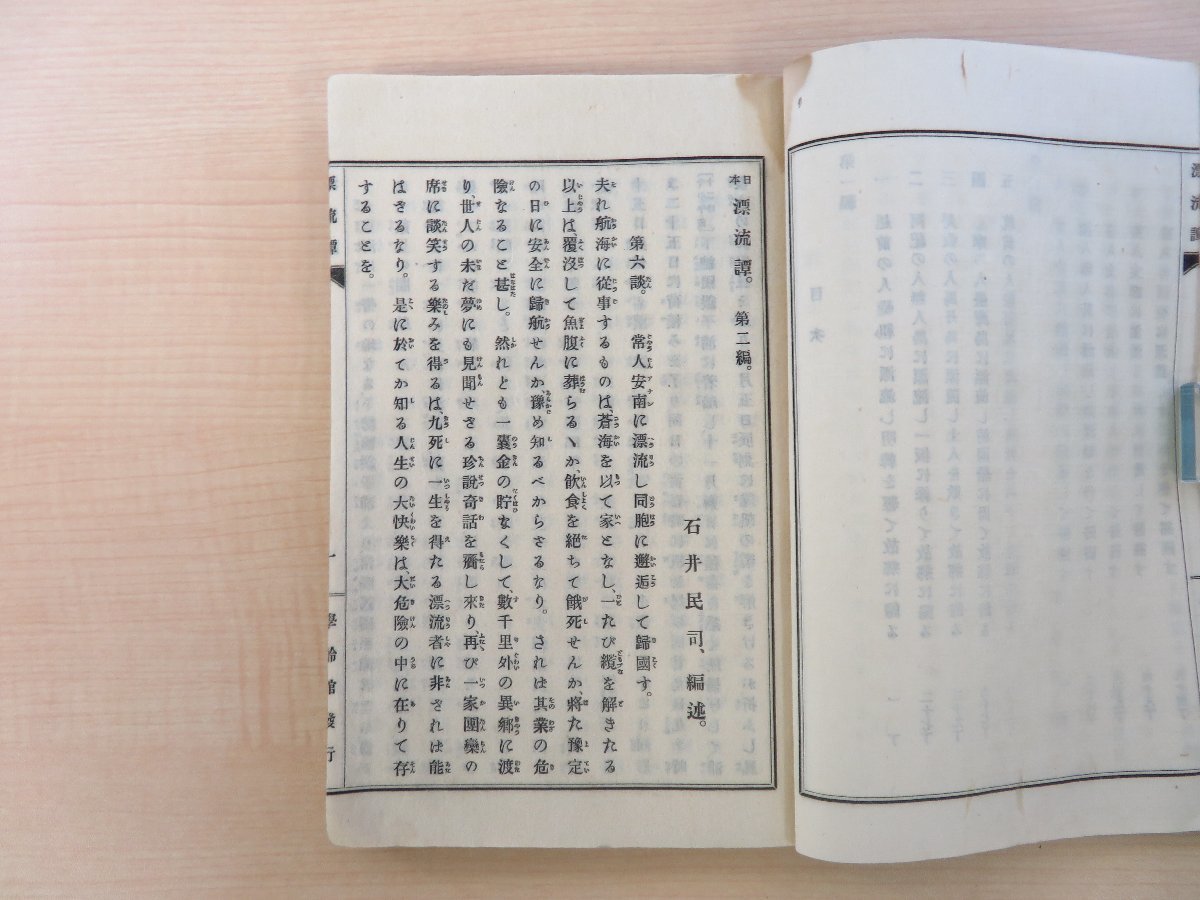 日本漂流譚。第二編。
石井民司、編述。
第六談。常人安南に漂流し同胞に邂逅して歸國す。
夫れ航海に從事するものは、蒼海を以て家となし、一たび纜を解きたる
以上は、覆沒して魚腹に葬らるヽか、飮食を絕ちて餓死せんか、將た豫定
の日に安全に歸航せんか、豫め知るべからさるなり。されは其業の危
險なること甚し。然れとも一囊金の貯なくして、數千里外の異鄕に渡
り、世人の未だ夢にも見聞せさる珍說奇話を齎し來り、再び一家團欒の
席に談笑する樂みを得るは、九死に一生を得たる漂流者に非されは能
はさるなり。是に於てか知る人生の大快樂は、大危險の中に在りて存
することを。
漂流譚
一
學齡館發行
漂流譚